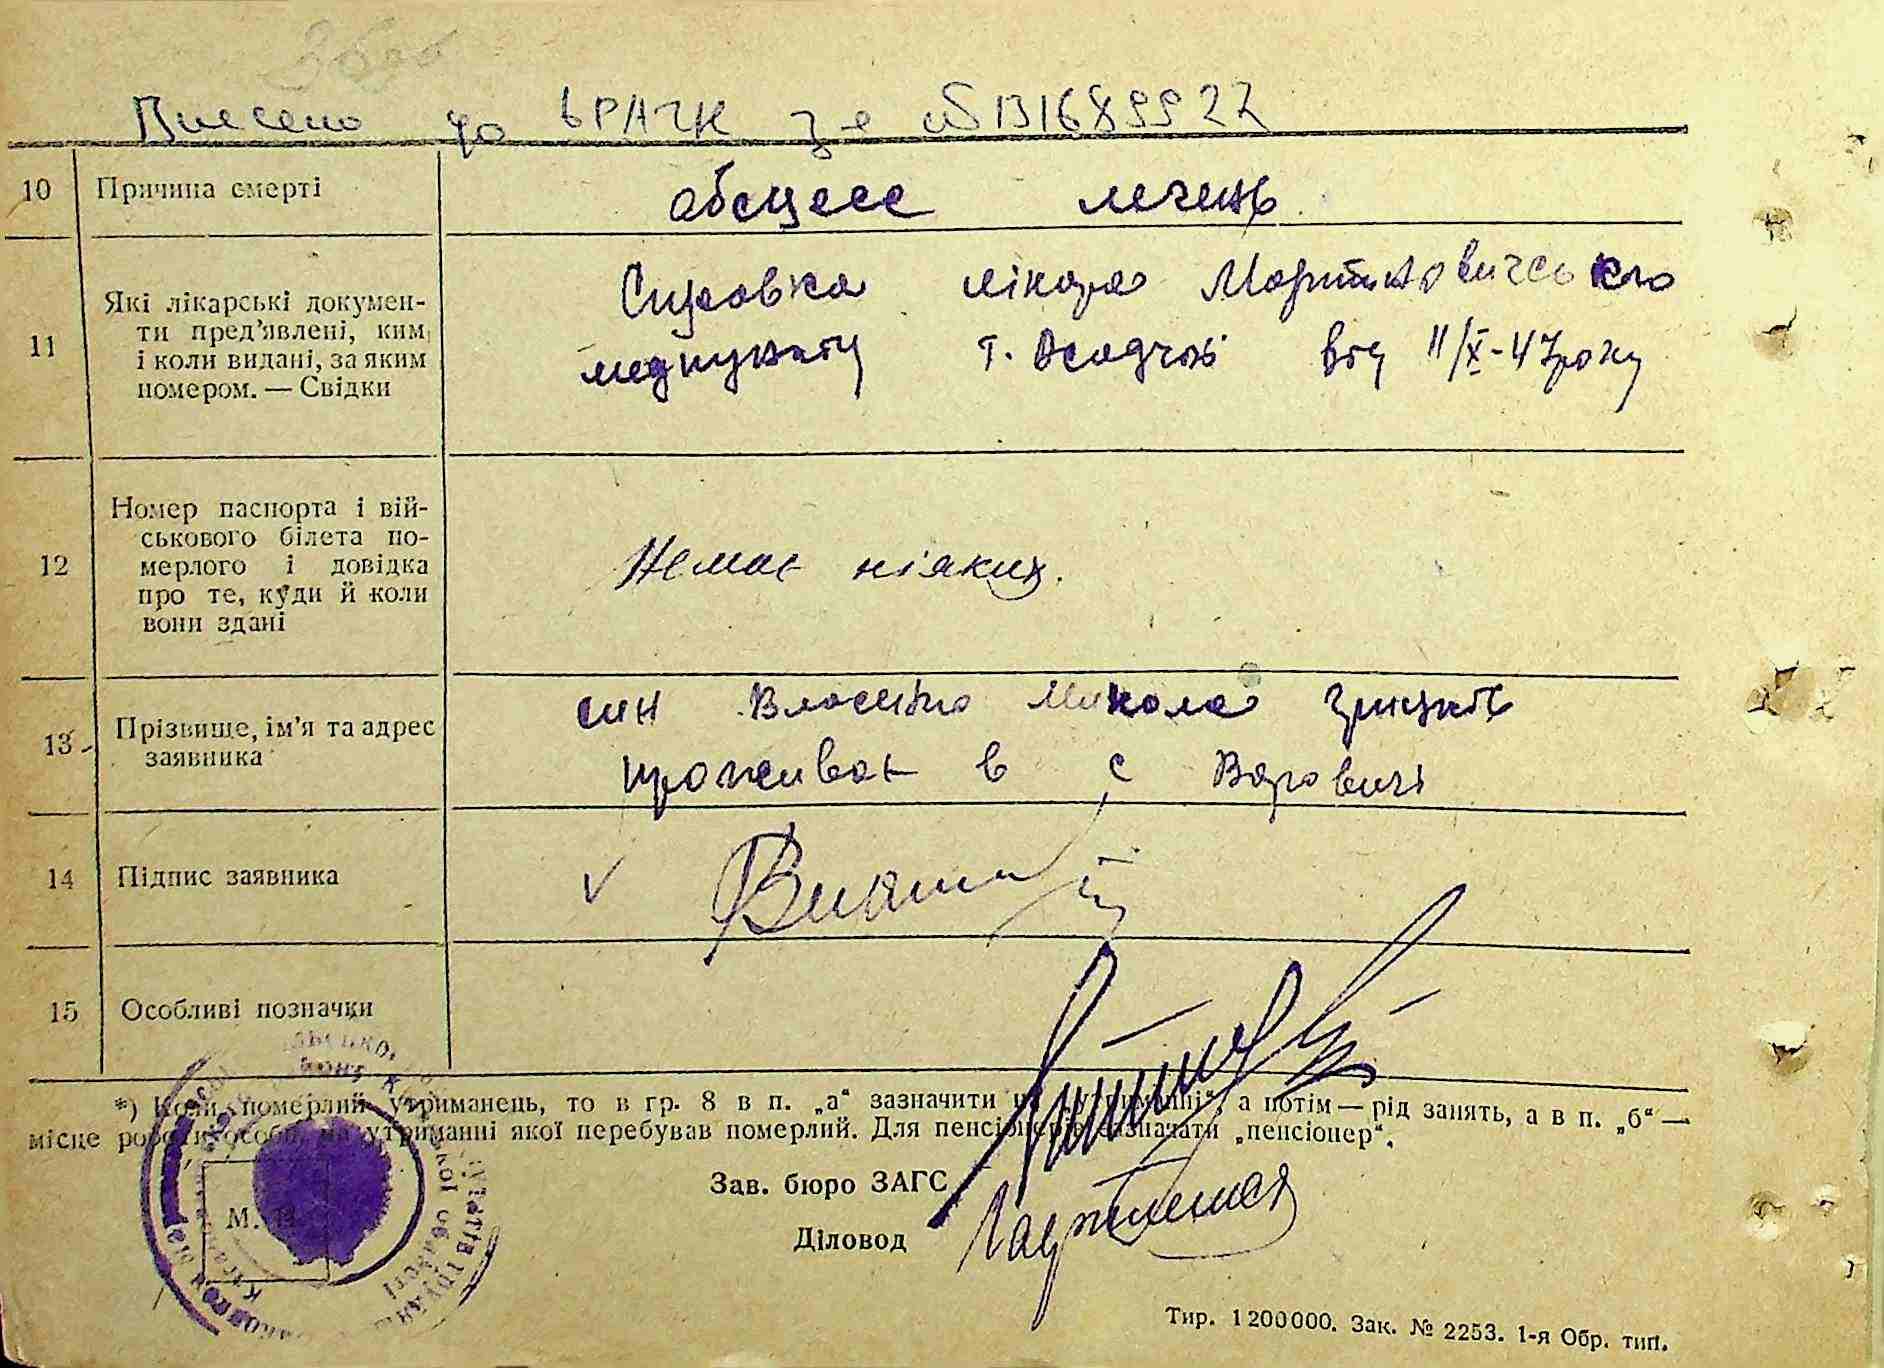 Внесено до ДРАЦС за № 00131689927
10 Причина смерті
абсцесс легень
11 Які лікарські документи пред’явлені, ким і коли видані, за яким номером. — Свідки
Справка лікаря Мартиновичського
медпункту т. Осадчої від 11/X-47 року
12 Номер паспорта і військового білета померлого і довідка про те, куди й коли вони здані
Немає ніяких.
13 Прізвище, ім’я та адрес заявника
син Власенко Микола Грицків
проживає в с Варовичі
14 Підпис заявника
15 Особливі позначки
*) Коли померлий утриманець, то в гр. 8 в п. „а“ зазначити на „утриманні“, а потім — рід занять, а в п. „б“ —
місце роботи особи, на утриманні якої перебував померлий. Для пенсіонерів зазначати „пенсіонер“.
Зав. бюро ЗАГС
Діловод
М. П.
Тир. 1200000. Зак. № 2253. 1-я Обр. тип.